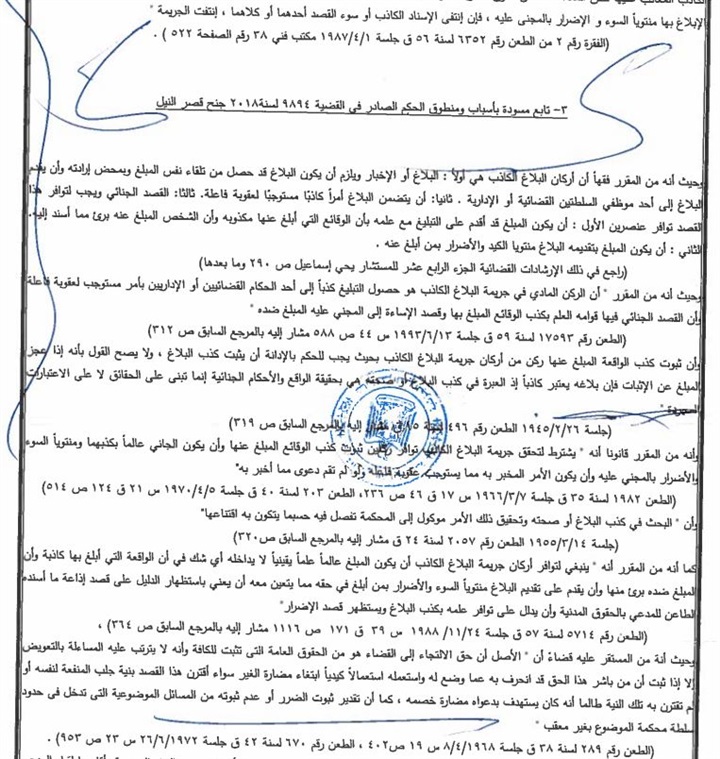 الإبلاغ بها منتوياً السوء و الإضرار بالمجنى عليه ، فإن إنتفى الإسناد الكاذب أو سوء القصد أحدهما أو كلاهما ، إنتفت الجريمة "
(الفقرة رقم ٢ من الطعن رقم ٦٣٥٢ لسنة ٥٦ ق جلسة ١٩٨٧/٤/١ مكتب فني ٣٨ رقم الصفحة ٥٢٢ ) .
٣- تابع مسودة بأسباب ومنطوق الحكم الصادر فى القضية ٩٨٩٤ لسنة٢٠١٨ جنح قصر النيل
وحيث أنه من المقرر فقهاً أن أركان البلاغ الكاذب هي أولاً : البلاغ أو الإخبار ويلزم أن يكون البلاغ قد حصل من تلقاء نفس المبلغ وبمحض إرادته وأن يقدم
البلاغ إلى أحد موظفي السلطتين القضائية أو الإدارية . ثانيا: أن يتضمن البلاغ أمراً كاذبًا مستوجبًا لعقوبة فاعلة. ثالثا: القصد الجنائي ويجب لتوافر هذا
القصد توافر عنصرين الأول : أن يكون المبلغ قد أقدم على التبليغ مع علمه بأن الوقائع التي أبلغ عنها مكذوبه وأن الشخص المبلغ عنه برئ مما أسند إليه.
الثاني : أن يكون المبلغ بتقديمه البلاغ منتويا الكيد والأضرار بمن أبلغ عنه .
(راجع في ذلك الإرشادات القضائية الجزء الرابع عشر للمستشار يحي إسماعيل ص ٢٩٠ وما بعدها)
وحيث أنه من المقرر " أن الركن المادي في جريمة البلاغ الكاذب هو حصول التبليغ كذباً إلى أحد الحكام القضائيين أو الإداريين بأمر مستوجب لعقوبة فاعلة
وأن القصد الجنائي فيها قوامه العلم بكذب الوقائع المبلغ بها وقصد الإساءة إلى المجني عليه المبلغ ضده "
(الطعن رقم ١٧٥٩٣ لسنة ٥٩ ق جلسة ١٩٩٣/٦/١٣ س ٤٤ ص ٥٨٨ مشار إليه بالمرجع السابق ص ٣١٢)
وأن ثبوت كذب الواقعة المبلغ عنها ركن من أركان جريمة البلاغ الكاذب بحيث يجب للحكم بالإدانة أن يثبت كذب البلاغ ، ولا يصح القول بأنه إذا عجز
المبلغ عن الإثبات فإن بلاغه يعتبر كاذباً إذ العبرة في كذب البلاغ أو صحته هي بحقيقة الواقع والأحكام الجنائية إنما تبنى على الحقائق لا على الاعتبارات
المجردة "
(جلسة ١٩٤٥/٢/٢٦ الطعن رقم ٤٩٦ لسنة ق مشار إليه بالمرجع السابق ص ٣١٩)
وأنه من المقرر قانونا أنه " يشترط لتحقق جريمة البلاغ الكاذب توافر ركنين ثبوت كذب الوقائع المبلغ عنها وأن يكون الجاني عالماً بكذبهما ومنتوياً السوء
والأضرار بالمجني عليه وأن يكون الأمر المخبر به مما يستوجب عقوبة فاعله ولو لم تقم دعوى مما أخبر به"
(الطعن ١٩٨٢ لسنة ٣٥ ق جلسة ١٩٦٦/٣/٧ س ١٧ ق ٤٦ ص ٢٣٦، الطعن ٢٠٣ لسنة ٤٠ ق جلسة ١٩٧٠/٤/٥ س ٢١ ق ١٢٤ ص ٥١٤)
وأن " البحث في كذب البلاغ أو صحته وتحقيق ذلك الأمر موكول إلى المحكمة تفصل فيه حسبما يتكون به اقتناعها"
(جلسة ١٩٥٥/٣/١٤ الطعن رقم ٢٠٥٧ لسنة ٢٤ ق مشار إليه بالمرجع السابق ص ٣٢٠)
كما أنه من المقرر أنه " ينبغي لتوافر أركان جريمة البلاغ الكاذب أن يكون المبلغ عالماً علماً يقينياً لا يداخله أي شك في أن الواقعة التي أبلغ بها كاذبة وأن
المبلغ ضده برئ منها وأن يقدم على تقديم البلاغ منتوياً السوء والأضرار بمن أبلغ في حقه مما يتعين معه أن يعني باستظهار الدليل على قصد إذاعة ما أسنده
الطاعن للمدعي بالحقوق المدنية وأن يدلل على توافر علمه بكذب البلاغ ويستظهر قصد الإضرار"
(الطعن رقم ٥٧١٤ لسنة ٥٧ ق جلسة ١٩٨٨ /١١/٢٤ س ٣٩ ق ١٧١ ص ١١١٦ مشار إليه بالمرجع السابق ص ٣٦٤) ،
وحيث أنة من المستقر عليه قضاءً أن " الأصل أن حق الالتجاء إلى القضاء هو من الحقوق العامة التى تثبت للكافة وأنه لا يترتب عليه المساءلة بالتعويض
إلا إذا ثبت أن من باشر هذا الحق قد انحرف به عما وضع له واستعمله استعمالاً كيدياً ابتغاء مضارة الغير سواء أقترن هذا القصد بنية جلب المنفعة لنفسه أو
لم تقترن به تلك النية طالما أنه كان يستهدف بدعواه مضارة خصمه ، كما أن تقدير ثبوت الضرر أو عدم ثبوته من المسائل الموضوعية التى تدخل فى حدود
سلطة محكمة الموضوع بغير معقب "
(الطعن رقم ٢٨٩ لسنة ٣٨ ق جلسة ٨/٤/١٩٦٨ س ١٩ ص٤٠٢ ، الطعن رقم ٦٧٠ لسنة ٤٢ ق جلسة ٢٦/٦/١٩٧٢ س ٢٣ ص ٩٥٣) .